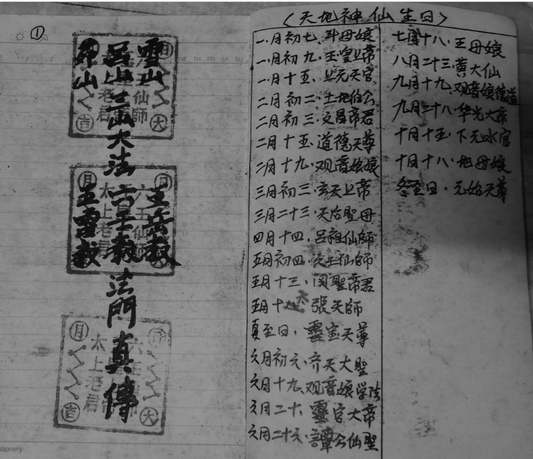 ①
雪山
呂山六仙大法
茅山
五雷教
六壬教
五岳教
法門真傳
太上老君
六壬仙師
月
吉
大
〈天地神仙生日〉
一月初七·斗母娘
一月初九·玉皇上帝
一月十五·上元天官
二月初二·土地伯公
二月初三·文昌帝君
二月十五·道德天尊
二月十九·观音娘娘
三月初三·玄天上帝
三月二十三·天后聖母
四月十四·呂祖仙師
五月初四·六壬仙師
五月十三·関聖帝君
五月十·張天師
夏至日·靈宝天尊
六月初六·齐天大聖
六月十九·观音娘学法
六月二十·靈官大帝
六月二十六·譚公仙聖
七月十八·王母娘
八月二十三·黄大仙
九月十九·观音娘得道
九月二十八·华光大帝
十月十五·下元水官
十月十八·地母娘
冬至日·元始天尊